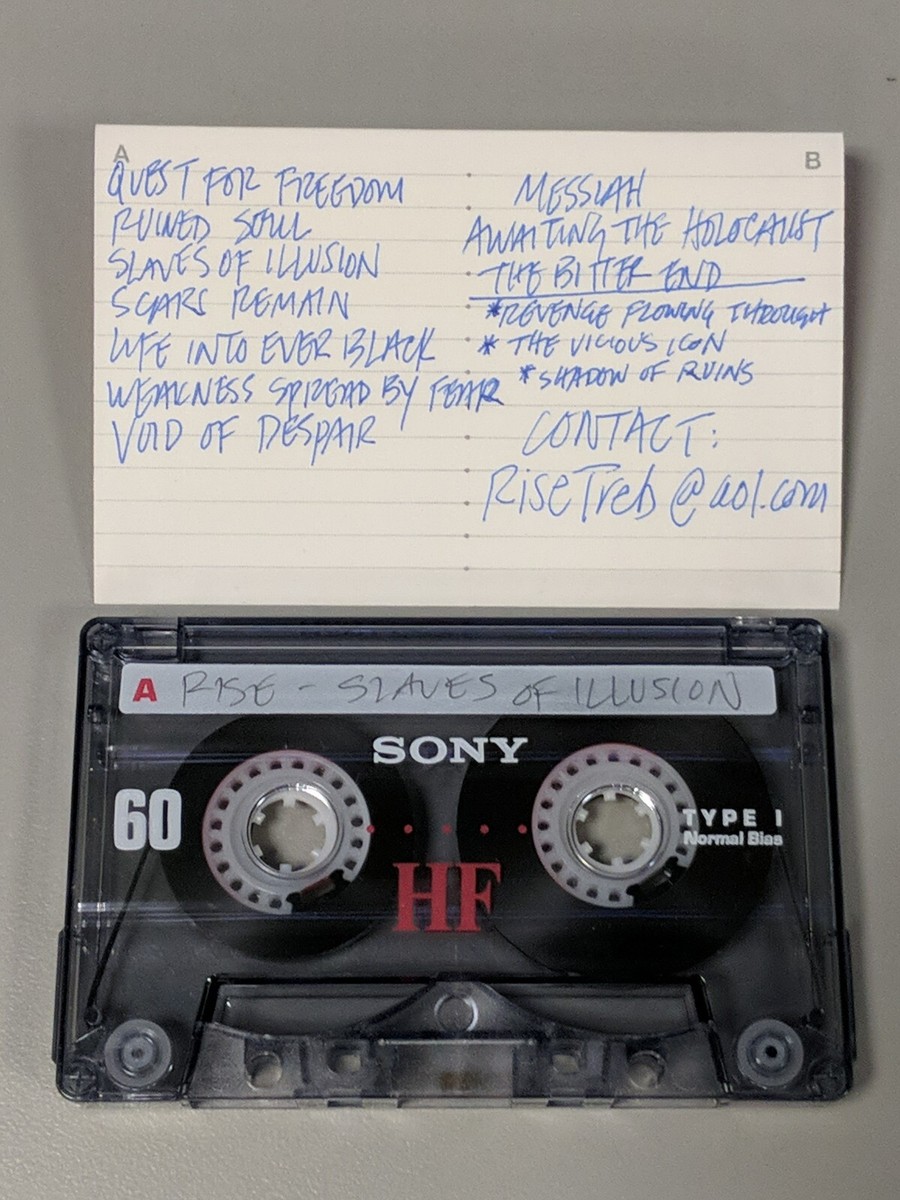 A
QUEST FOR FREEDOM
RUINED SOUL
SLAVES OF ILLUSION
SCARS REMAIN
LIFE INTO EVER BLACK
WEAKNESS SPREAD BY FEAR
VOID OF DESPAIR
B
MESSIAH
AWAITING THE HOLOCAUST
THE BITTER END
*REVENGE FLOWING THROUGH
* THE VICIOUS ICON
*SHADOW OF RUINS
CONTACT:
RiseTreb@aol.com
A RISE - SLAVES OF ILLUSION
SONY
60
TYPE I
Normal Bias
HF